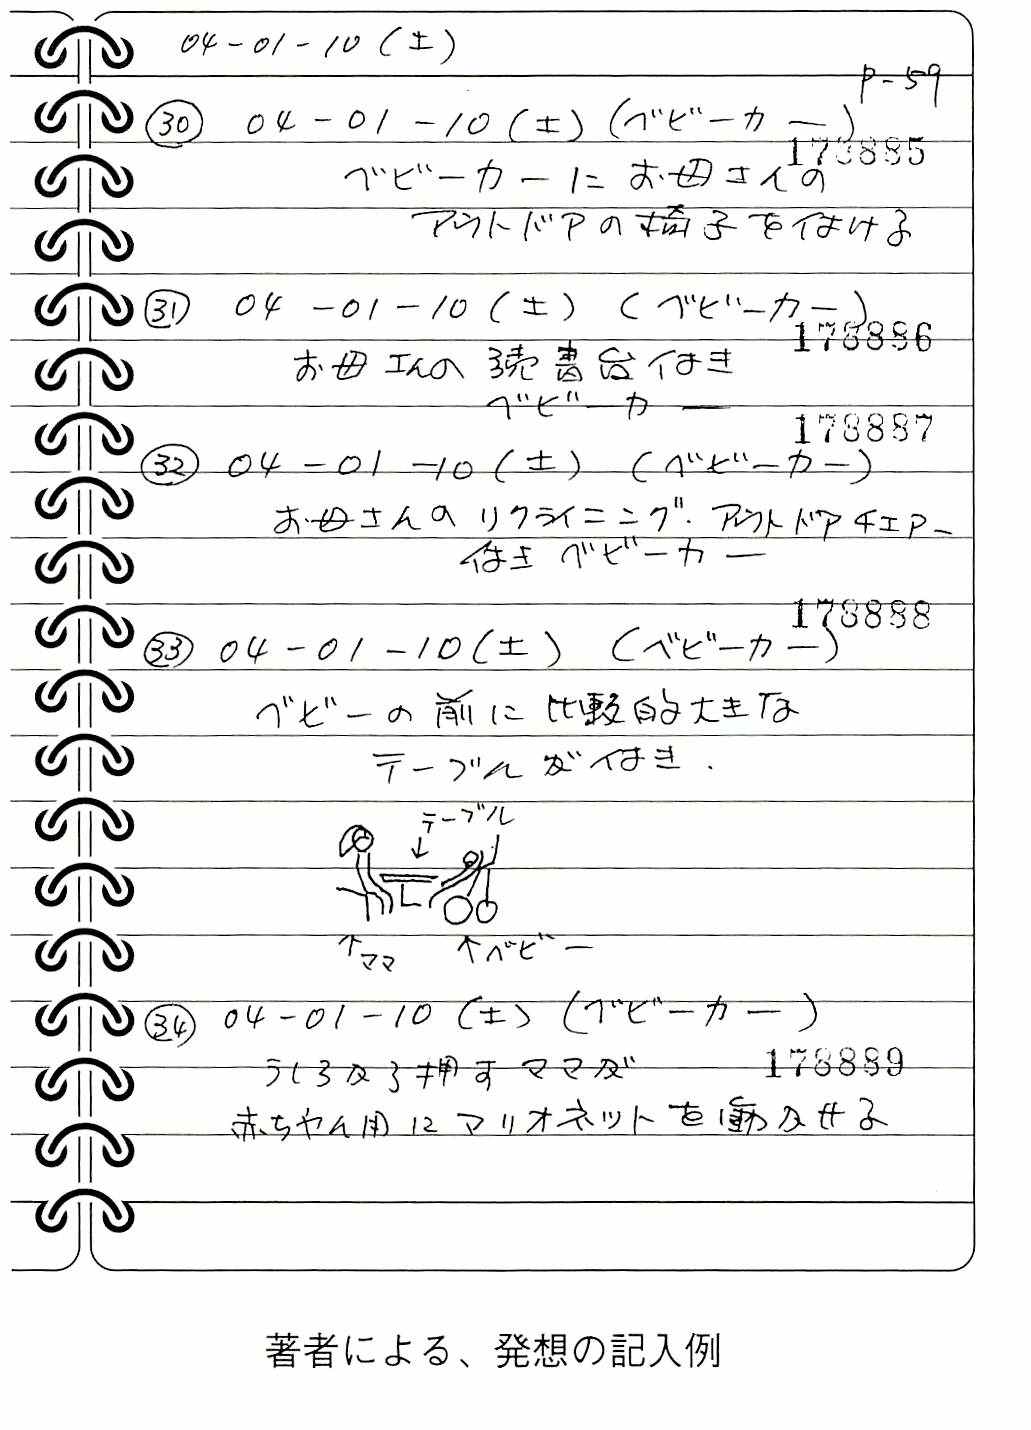 04-01-10(土)
P-59
㉚ 04-01-10(土)(ベビーカー)
178885
ベビーカーにお母さんの
アウトドアの椅子を付ける
㉛ 04-01-10(土)(ベビーカー)
178886
お母さんの読書台付き
ベビーカー
178887
㉜ 04-01-10(土)(ベビーカー)
お母さんのリクライニング・アウトドアチェアー
付きベビーカー
178888
㉝ 04-01-10(土)(ベビーカー)
ベビーの前に比較的大きな
テーブルが付き.
テーブル
↓
↑ママ ↑ベビー
㉞ 04-01-10(土)(ベビーカー)
178889
うしろから押すママが
赤ちゃん用にマリオネットを動かせる
著者による、発想の記入例